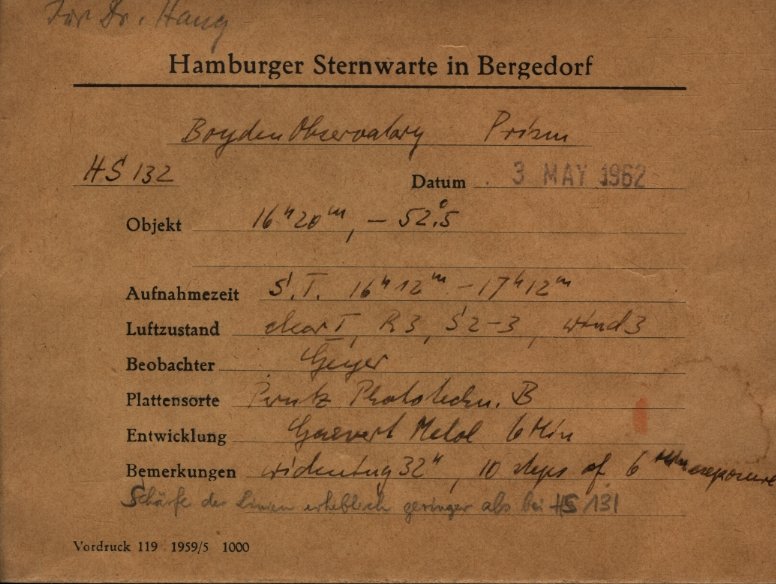 Für Dr. Haug
Hamburger Sternwarte in Bergedorf
Boyden Observatory Prism
HS 132 Datum 3 MAY 1962
Objekt 16ʰ20ᵐ, -52°.5
Aufnahmezeit S.T. 16ʰ12ᵐ-17ʰ12ᵐ
Luftzustand clear I, R3, S2-3, wind3
Beobachter Geyer
Plattensorte Perutz Phototechn. B
Entwicklung Gaevert Metol 6 Min
Bemerkungen widening 32", 10 steps of 6 Min exposure
Schärfe der Linien erheblich geringer als bei HS 131
Vordruck 119 1959/5 1000